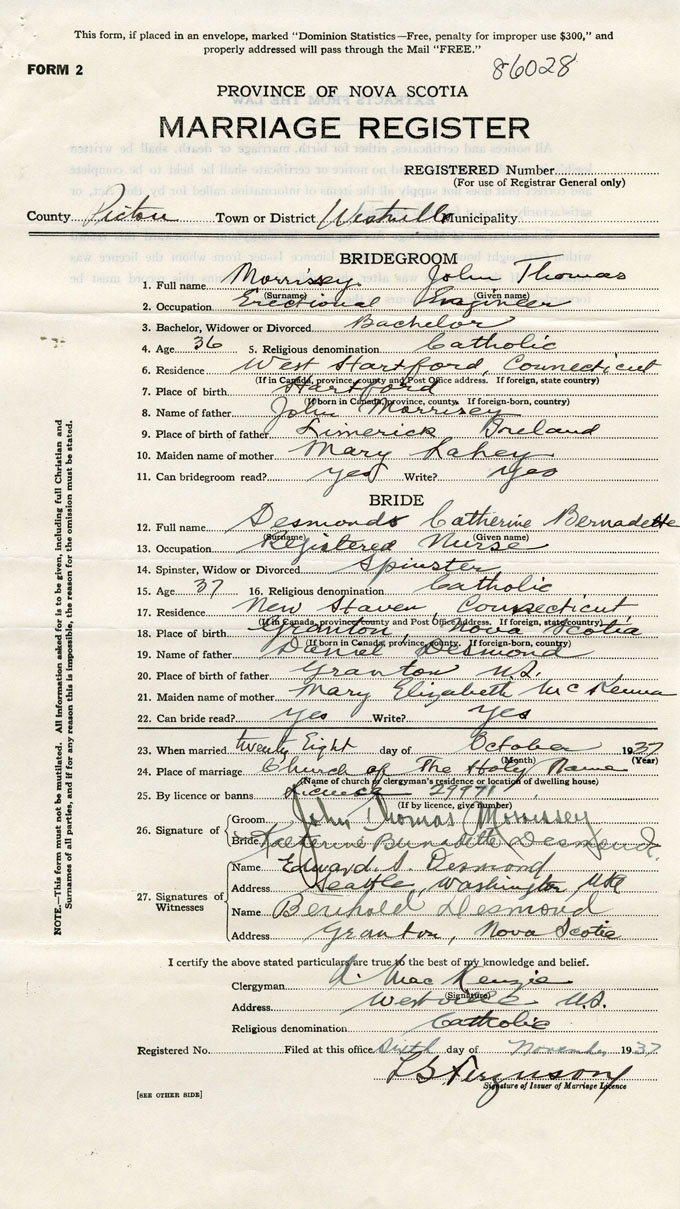 This form, if placed in an envelope, marked "Dominion Statistics—Free, penalty for improper use $300," and
properly addressed will pass through the Mail "FREE."
FORM 2
86028
PROVINCE OF NOVA SCOTIA
MARRIAGE REGISTER
REGISTERED Number
(For use of Registrar General only)
County Pictou Town or District Westville Municipality
BRIDEGROOM
1. Full name Morrissey John Thomas
(Surname) (Given name)
2. Occupation Erectional Engineer
3. Bachelor, Widower or Divorced Bachelor
4. Age 36 5. Religious denomination Catholic
6. Residence West Hartford, Connecticut
(If in Canada, province, county and Post Office address. If foreign, state country)
7. Place of birth Hartford
(If born in Canada, province, county. If foreign-born, country)
8. Name of father John Morrisey
9. Place of birth of father Limerick Ireland
10. Maiden name of mother Mary Lahey
11. Can bridegroom read? yes Write? yes
BRIDE
12. Full name Desmond Catherine Bernadette
(Surname) (Given name)
13. Occupation Registered Nurse
14. Spinster, Widow or Divorced Spinster
15. Age 37 16. Religious denomination Catholic
17. Residence New Haven, Connecticut
(If in Canada, province, county and Post Office address. If foreign, state country)
18. Place of birth Granton, Nova Scotia
(If born in Canada, province, county. If foreign-born, country)
19. Name of father Daniel Desmond
20. Place of birth of father Granton N.S.
21. Maiden name of mother Mary Elizabeth McKenna
22. Can bride read? yes Write? yes
23. When married twenty Eight day of October 1937
(Month) (Year)
24. Place of marriage Church of The Holy Name
(Name of church or clergyman's residence or location of dwelling house)
25. By licence or banns License 29971
(If by licence, give number)
26. Signature of Groom John Thomas Morrissey
Bride Katherine Bernadette Desmond
27. Signatures of Witnesses
Name Edward J. Desmond
Address Seattle, Washington
Name Berthold Desmond
Address Granton, Nova Scotia
I certify the above stated particulars are true to the best of my knowledge and belief.
Clergyman MacKenzie
(Signature)
Address Westville N.S.
Religious denomination Catholic
Registered No. Filed at this office Sixth day of November 1937
Ferguson
Signature of Issuer of Marriage Licence
[SEE OTHER SIDE]
NOTE.—This form must not be mutilated. All information asked for is to be given, including full Christian and
Surnames of all parties, and if for any reason this is impossible, the reason for the omission must be stated.